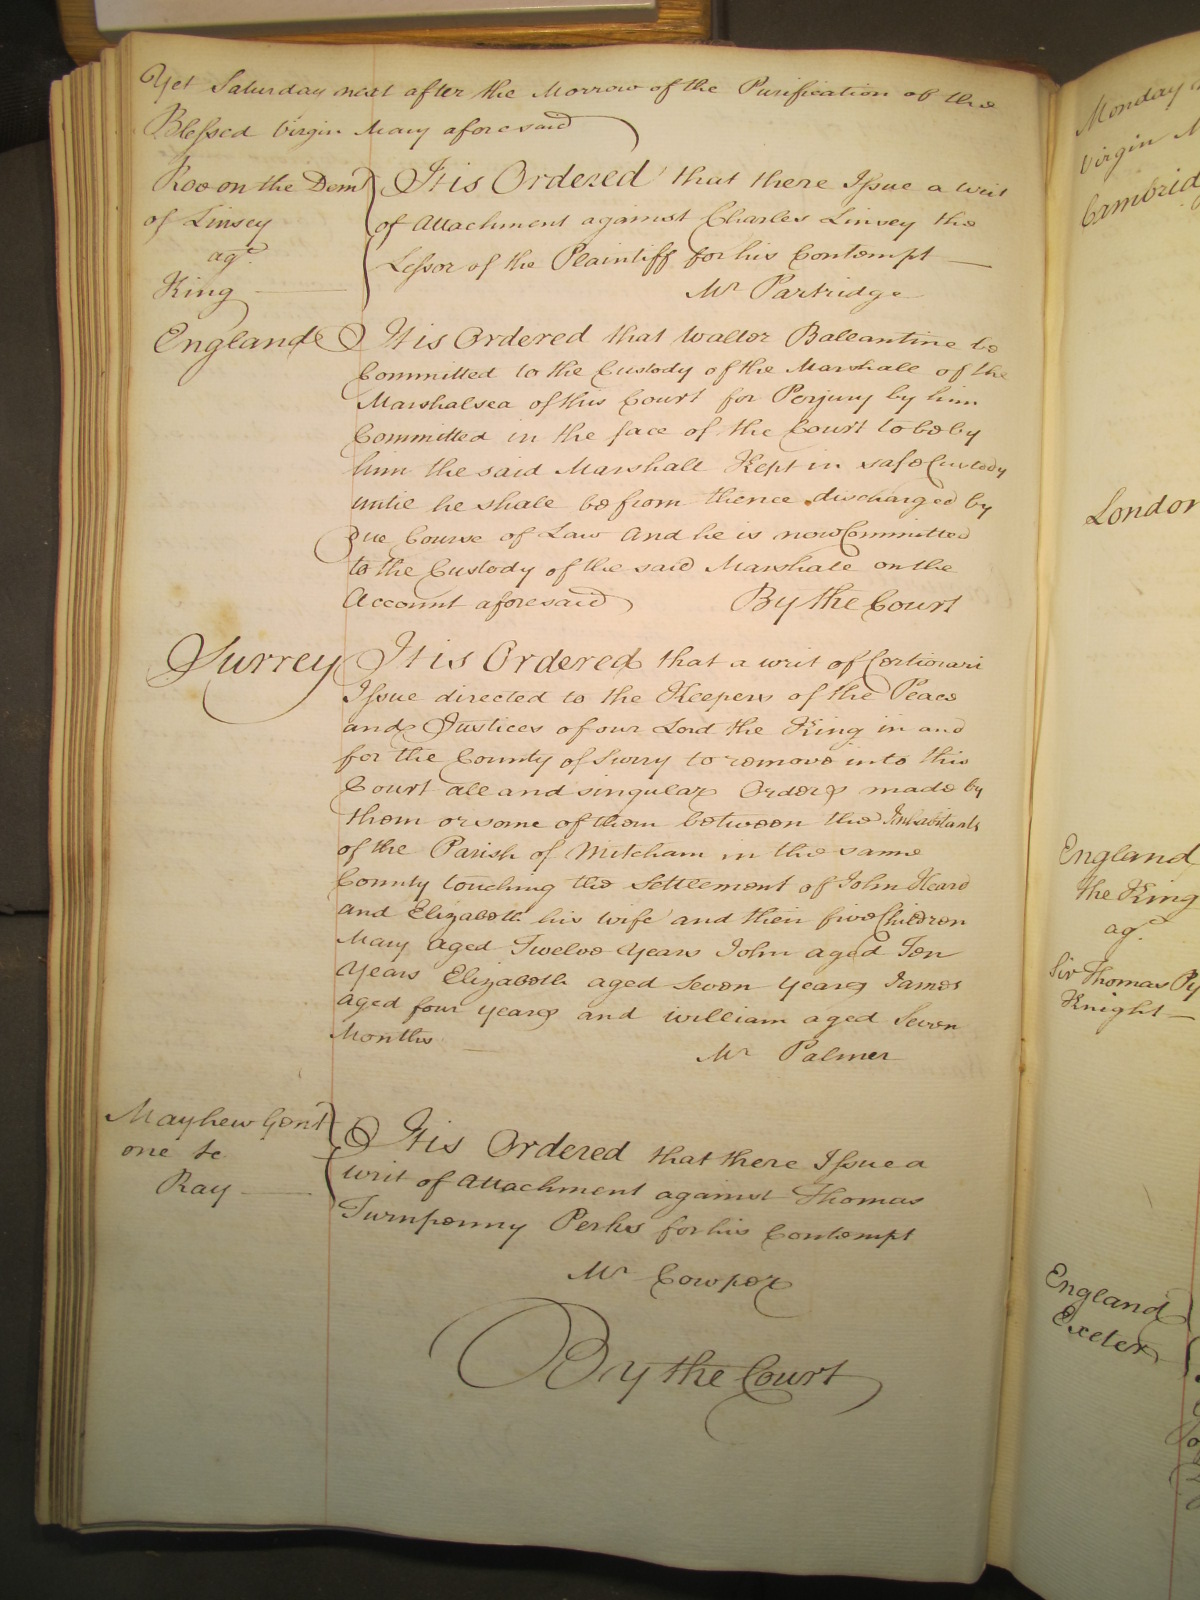 Yet Saturday next after the Morrow of the Purification of the
Blessed Virgin Mary aforesaid
Roe on the Dem
of Linsey
agt
King
It is Ordered that there Issue a writ
of Attachment against Charles Linsey the
Lessor of the Plaintiff for his Contempt
Mr Partridge
England
It is Ordered that Walter Ballantine be
Committed to the Custody of the Marshall of the
Marshalsea of this Court for Perjury by him
Committed in the face of the Court to be by
him the said Marshall Kept in safe Custody
until he shall be from thence discharged by
Due Course of Law And he is now Committed
to the Custody of the said Marshall on the
Account aforesaid By the Court
Surrey
It is Ordered that a writ of Certiorari
Issue directed to the Keepers of the Peace
and Justices of our Lord the King in and
for the County of Surry to remove into this
Court all and singular Orders made by
them or some of them between the Inhabitants
of the Parish of Mitcham in the same
County touching the Settlement of John Heard
and Elizabeth his wife and their five Children
Mary aged Twelve Years John aged Ten
Years Elizabeth aged Seven Years James
aged four years and William aged Seven
Months
Mr Palmer
Mayhew Gent
one &c
Ray
It is Ordered that there Issue a
writ of Attachment against Thomas
Turnpenny Perks for his Contempt
Mr Cowper
By the Court
Monday
Virgin
London
England
the King
agt
Sir Thomas
Knight
England
Exeter